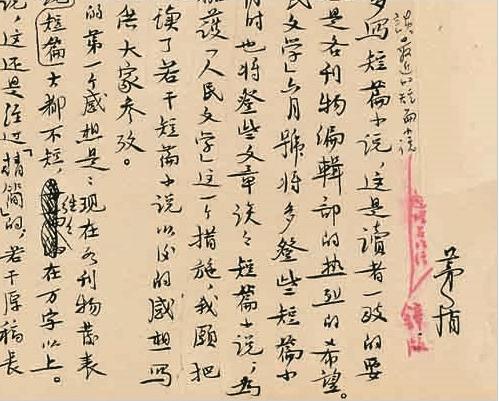 谈最近的短篇小说
茅盾
多写短篇小说，这是读者一致的要
是各刊物编辑部的热烈的希望。
民文学」六月號将多登些短篇小
时也将登些文章谈谈短篇小说，为
护「人民文学」这一个措施，我愿把
读了若干短篇小说以后的感想写
供大家参攷。
的第一个感想是：现在各刊物发表
短篇大都不短，往往在万字以上。
说，这还是经过「精简」的，若干原稿长